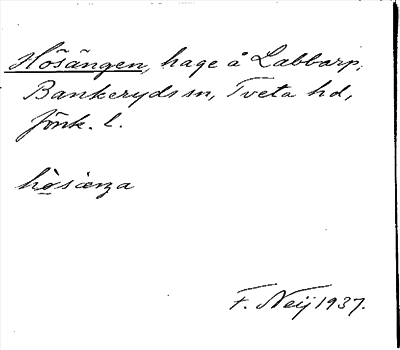 Hösängen, hage å Labbarp,
Bankeryds sn, Tveta hd,
Jönk. l.
hösænza
F. Neij 1937.